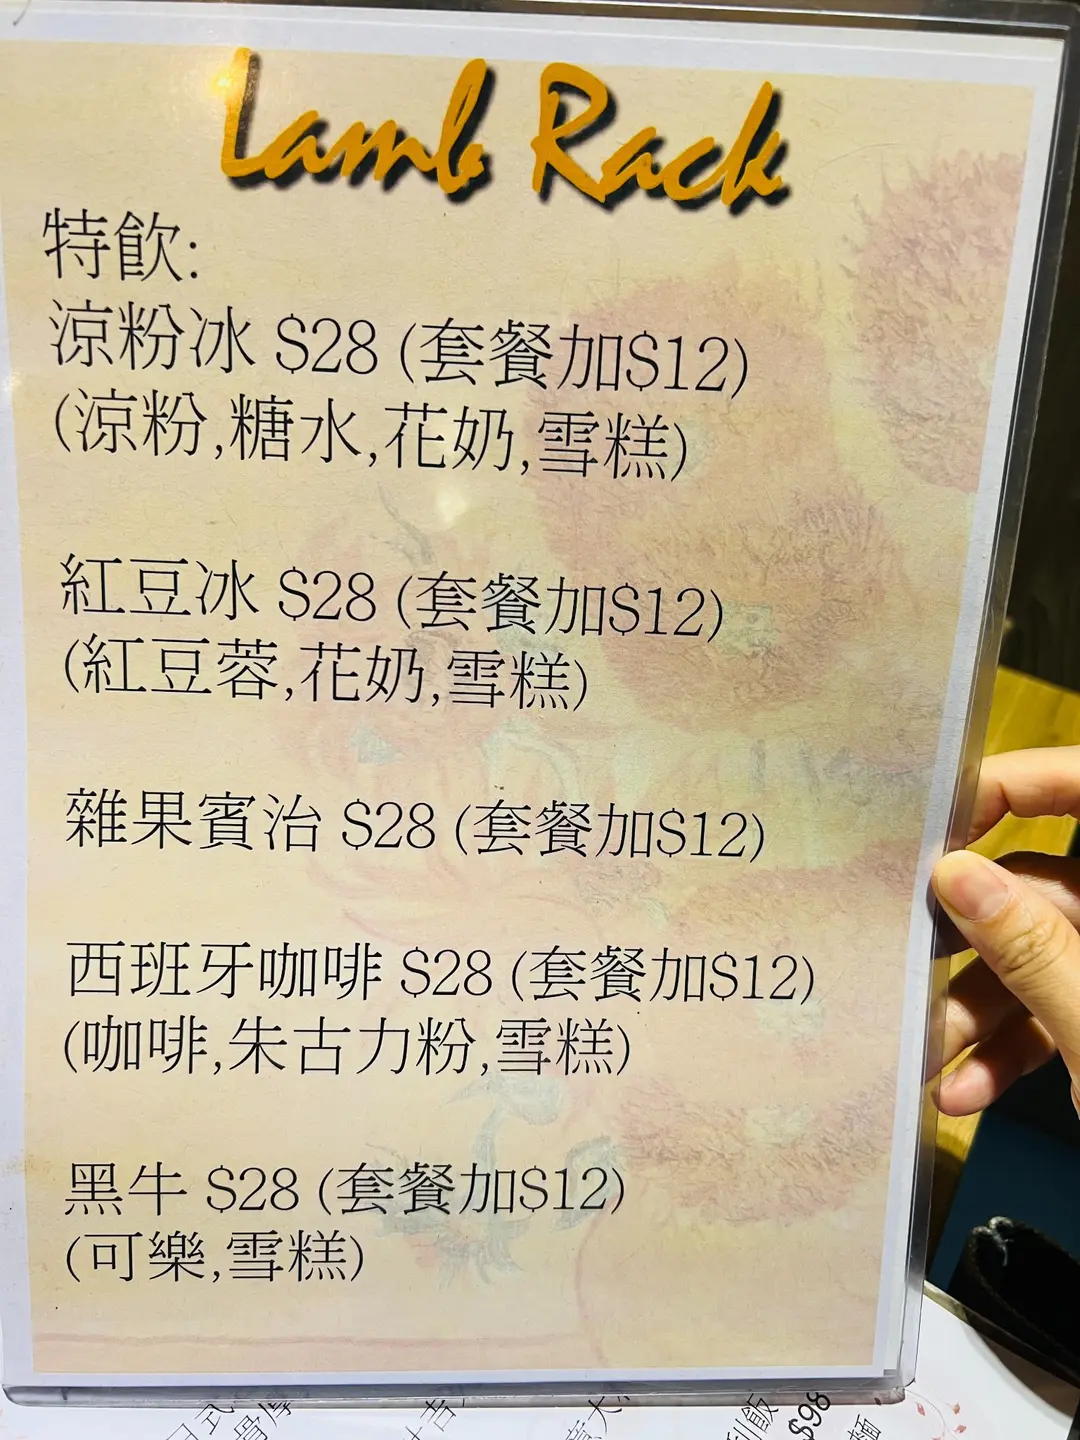 Lamb Rack
特飲:
涼粉冰 $28 (套餐加$12)
(涼粉,糖水,花奶,雪糕)
紅豆冰 $28 (套餐加$12)
(紅豆蓉,花奶,雪糕)
雜果賓治 $28 (套餐加$12)
西班牙咖啡 $28 (套餐加$12)
(咖啡,朱古力粉,雪糕)
黑牛 $28 (套餐加$12)
(可樂,雪糕)
日式
飯
$98
麵